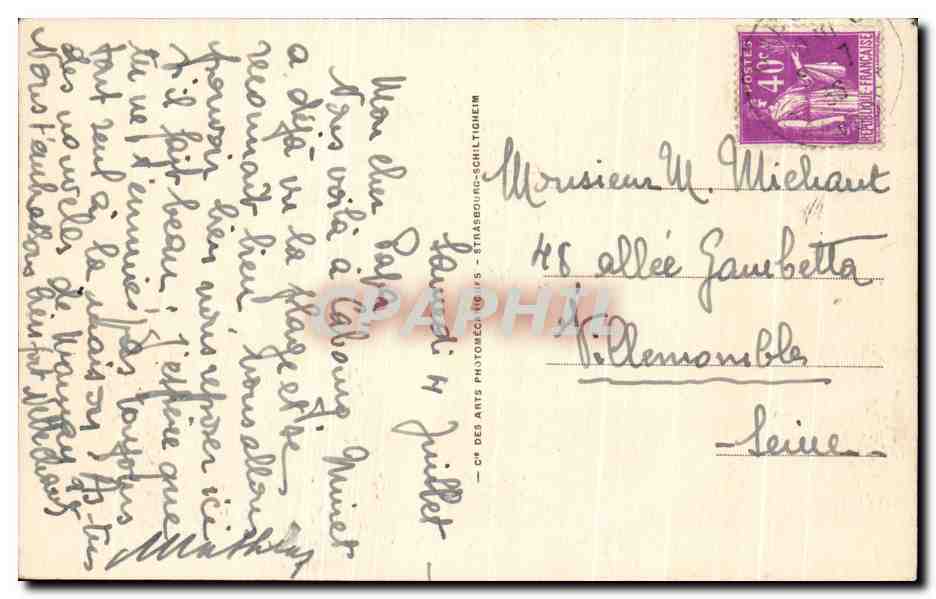 Samedi 4 Juillet
Mon cher Papa
Nous voilà à Cabourg Minet
a déjà vu la plage et se
reconnait bien nous allons
pouvoir bien nous reposer ici
s'il fait beau, j'espère que
tu ne t'ennuies pas toujours
tout seul à la maison, As-tu
des nouvelles de
Nous t'embrassons bien fort
Mathieu
Cie DES ARTS PHOTOMÉCANIQUES - STRASBOURG-SCHILTIGHEIM
CPAPHIL
POSTES
40c
RÉPUBLIQUE-FRANÇAISE
Monsieur M. Michaut
48 allée Gambetta
Villemomble
-Seine-